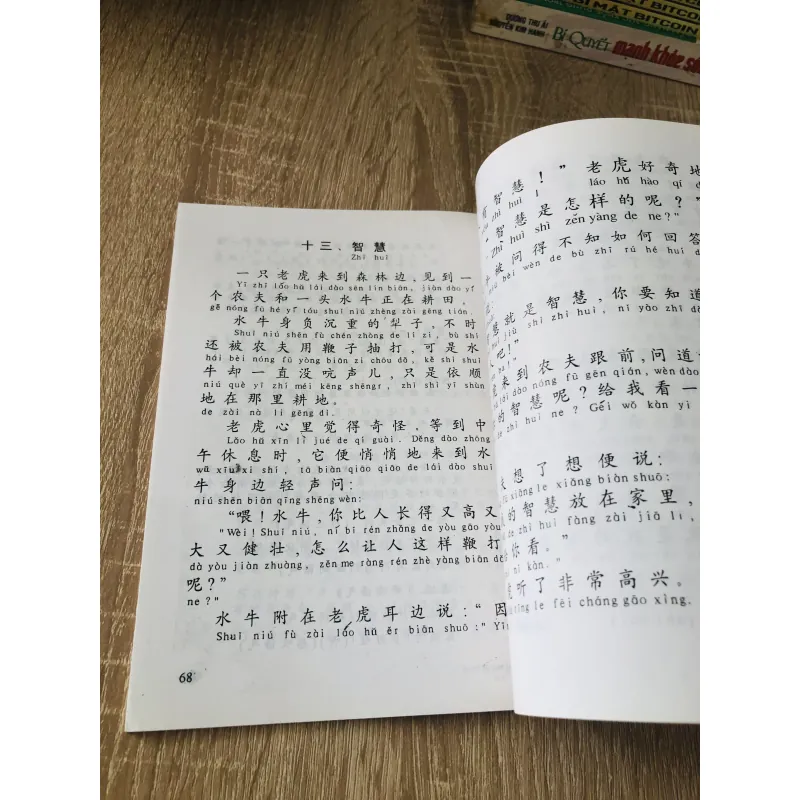 BÍ MẬT BITCOIN
DƯƠNG THU ÁI
NGUYỄN KIM HANH
BÍ QUYẾT
mạnh khỏe
十三、智慧
Zhì huì
一只老虎来到森林边，见到一
Yī zhī lǎo hǔ lái dào sēn lín biān, jiàn dào yī
个农夫和一头水牛正在耕田，
gē nóng fū hé yī tóu shuǐ niú zhèng zài gēng tián.
水牛身负沉重的犁子，不时
Shuǐ niú shēn fù chén zhòng de lí zi, bù shí
还被农夫用鞭子抽打，可是水
hái bèi nóng fū yòng biān zi chōu dǎ, kě shì shuǐ
牛却一直没吭声儿，只是依顺
niú què yī zhí méi kēng shēngr, zhǐ shì yī shùn
地在那里耕地。
de zài nà lǐ gēng dì.
老虎心里觉得奇怪，等到中
Lǎo hǔ xīn lǐ jué de qí guài. Děng dào zhōng
午休息时，它便悄悄地来到水
wǔ xiū xi shí, tā biàn qiāo qiāo de lái dào shuǐ
牛身边轻声问：
niú shēn biān qīng shēng wèn:
“喂！水牛，你比人长得又高又
"Wèi! Shuǐ niú, nǐ bǐ rén zhǎng de yòu gāo yòu
大又健壮，怎么让人这样鞭打
dà yòu jiàn zhuàng, zěn me ràng rén zhè yàng biān dǎ
呢？”
ne?"
水牛附在老虎耳边说：“因
Shuǐ niú fù zài lǎo hǔ ěr biān shuō: "Yīn
68
有智慧！”老虎好奇地
zhì huì! lǎo hǔ hào qí
“智慧是怎样的呢？”
Zhì huì shì zěn yàng de ne?"
被问得不知如何回答
bèi wèn de bù zhī rú hé huí
就是智慧，你要知道
jiù shì zhì huì, nǐ yào zhī
吧！”
来到农夫跟前，问道
lái dào nóng fū gēn qián, wèn dào
的智慧呢？给我看一
zhì huì ne? Gěi wǒ kàn yī
想了想便说：
xiǎng le xiǎng biàn shuō:
的智慧放在家里，
de zhì huì fàng zài jiā lǐ,
你看。”
nǐ kàn."
听了非常高兴。
tīng le fēi cháng gāo xìng.